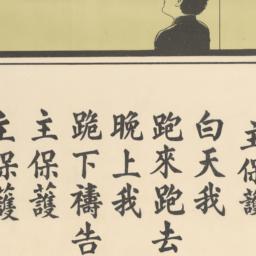 主保護
白天我
跑來跑去
晚上我
跪下禱告
主保護
主保護